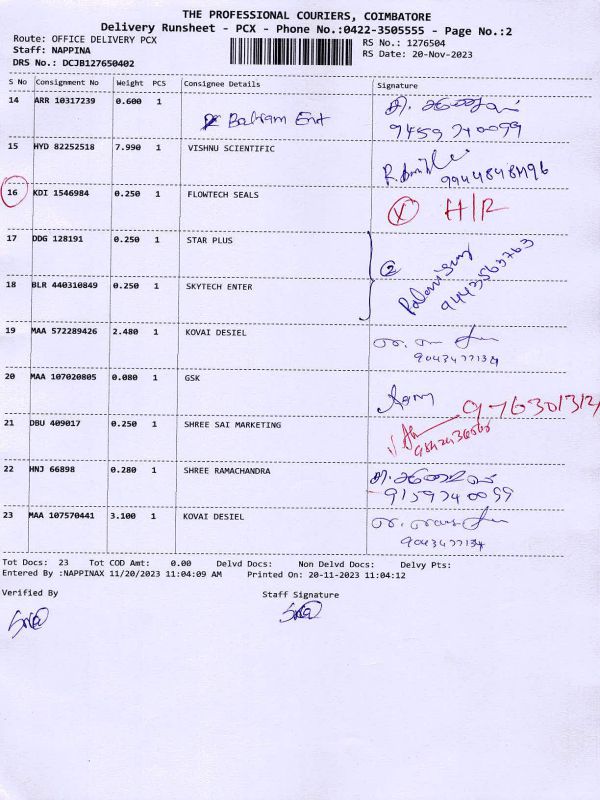 THE PROFESSIONAL COURIERS, COIMBATORE
Delivery Runsheet - PCX - Phone No.:0422-3505555 - Page No.:2
Route: OFFICE DELIVERY PCX RS No.: 1276504
Staff: NAPPINA RS Date: 20-Nov-2023
DRS No.: DCJB127650402
S No Consignment No Weight PCS Consignee Details Signature
14 ARR 10317239 0.600 1 Balram Ent
15 HYD 82252518 7.990 1 VISHNU SCIENTIFIC
9944848496
16 KDI 1546984 0.250 1 FLOWTECH SEALS X H/R
17 DDG 128191 0.250 1 STAR PLUS
2
9443563763
18 BLR 440310849 0.250 1 SKYTECH ENTER
19 MAA 572289426 2.480 1 KOVAI DESIEL
9043477134
20 MAA 107020805 0.080 1 GSK
21 DBU 409017 0.250 1 SHREE SAI MARKETING
22 HNJ 66898 0.280 1 SHREE RAMACHANDRA
9159740099
23 MAA 107570441 3.100 1 KOVAI DESIEL
9043477134
Tot Docs: 23 Tot COD Amt: 0.00 Delvd Docs: Non Delvd Docs: Delvy Pts:
Entered By :NAPPINAX 11/20/2023 11:04:09 AM Printed On: 20-11-2023 11:04:12
Verified By Staff Signature